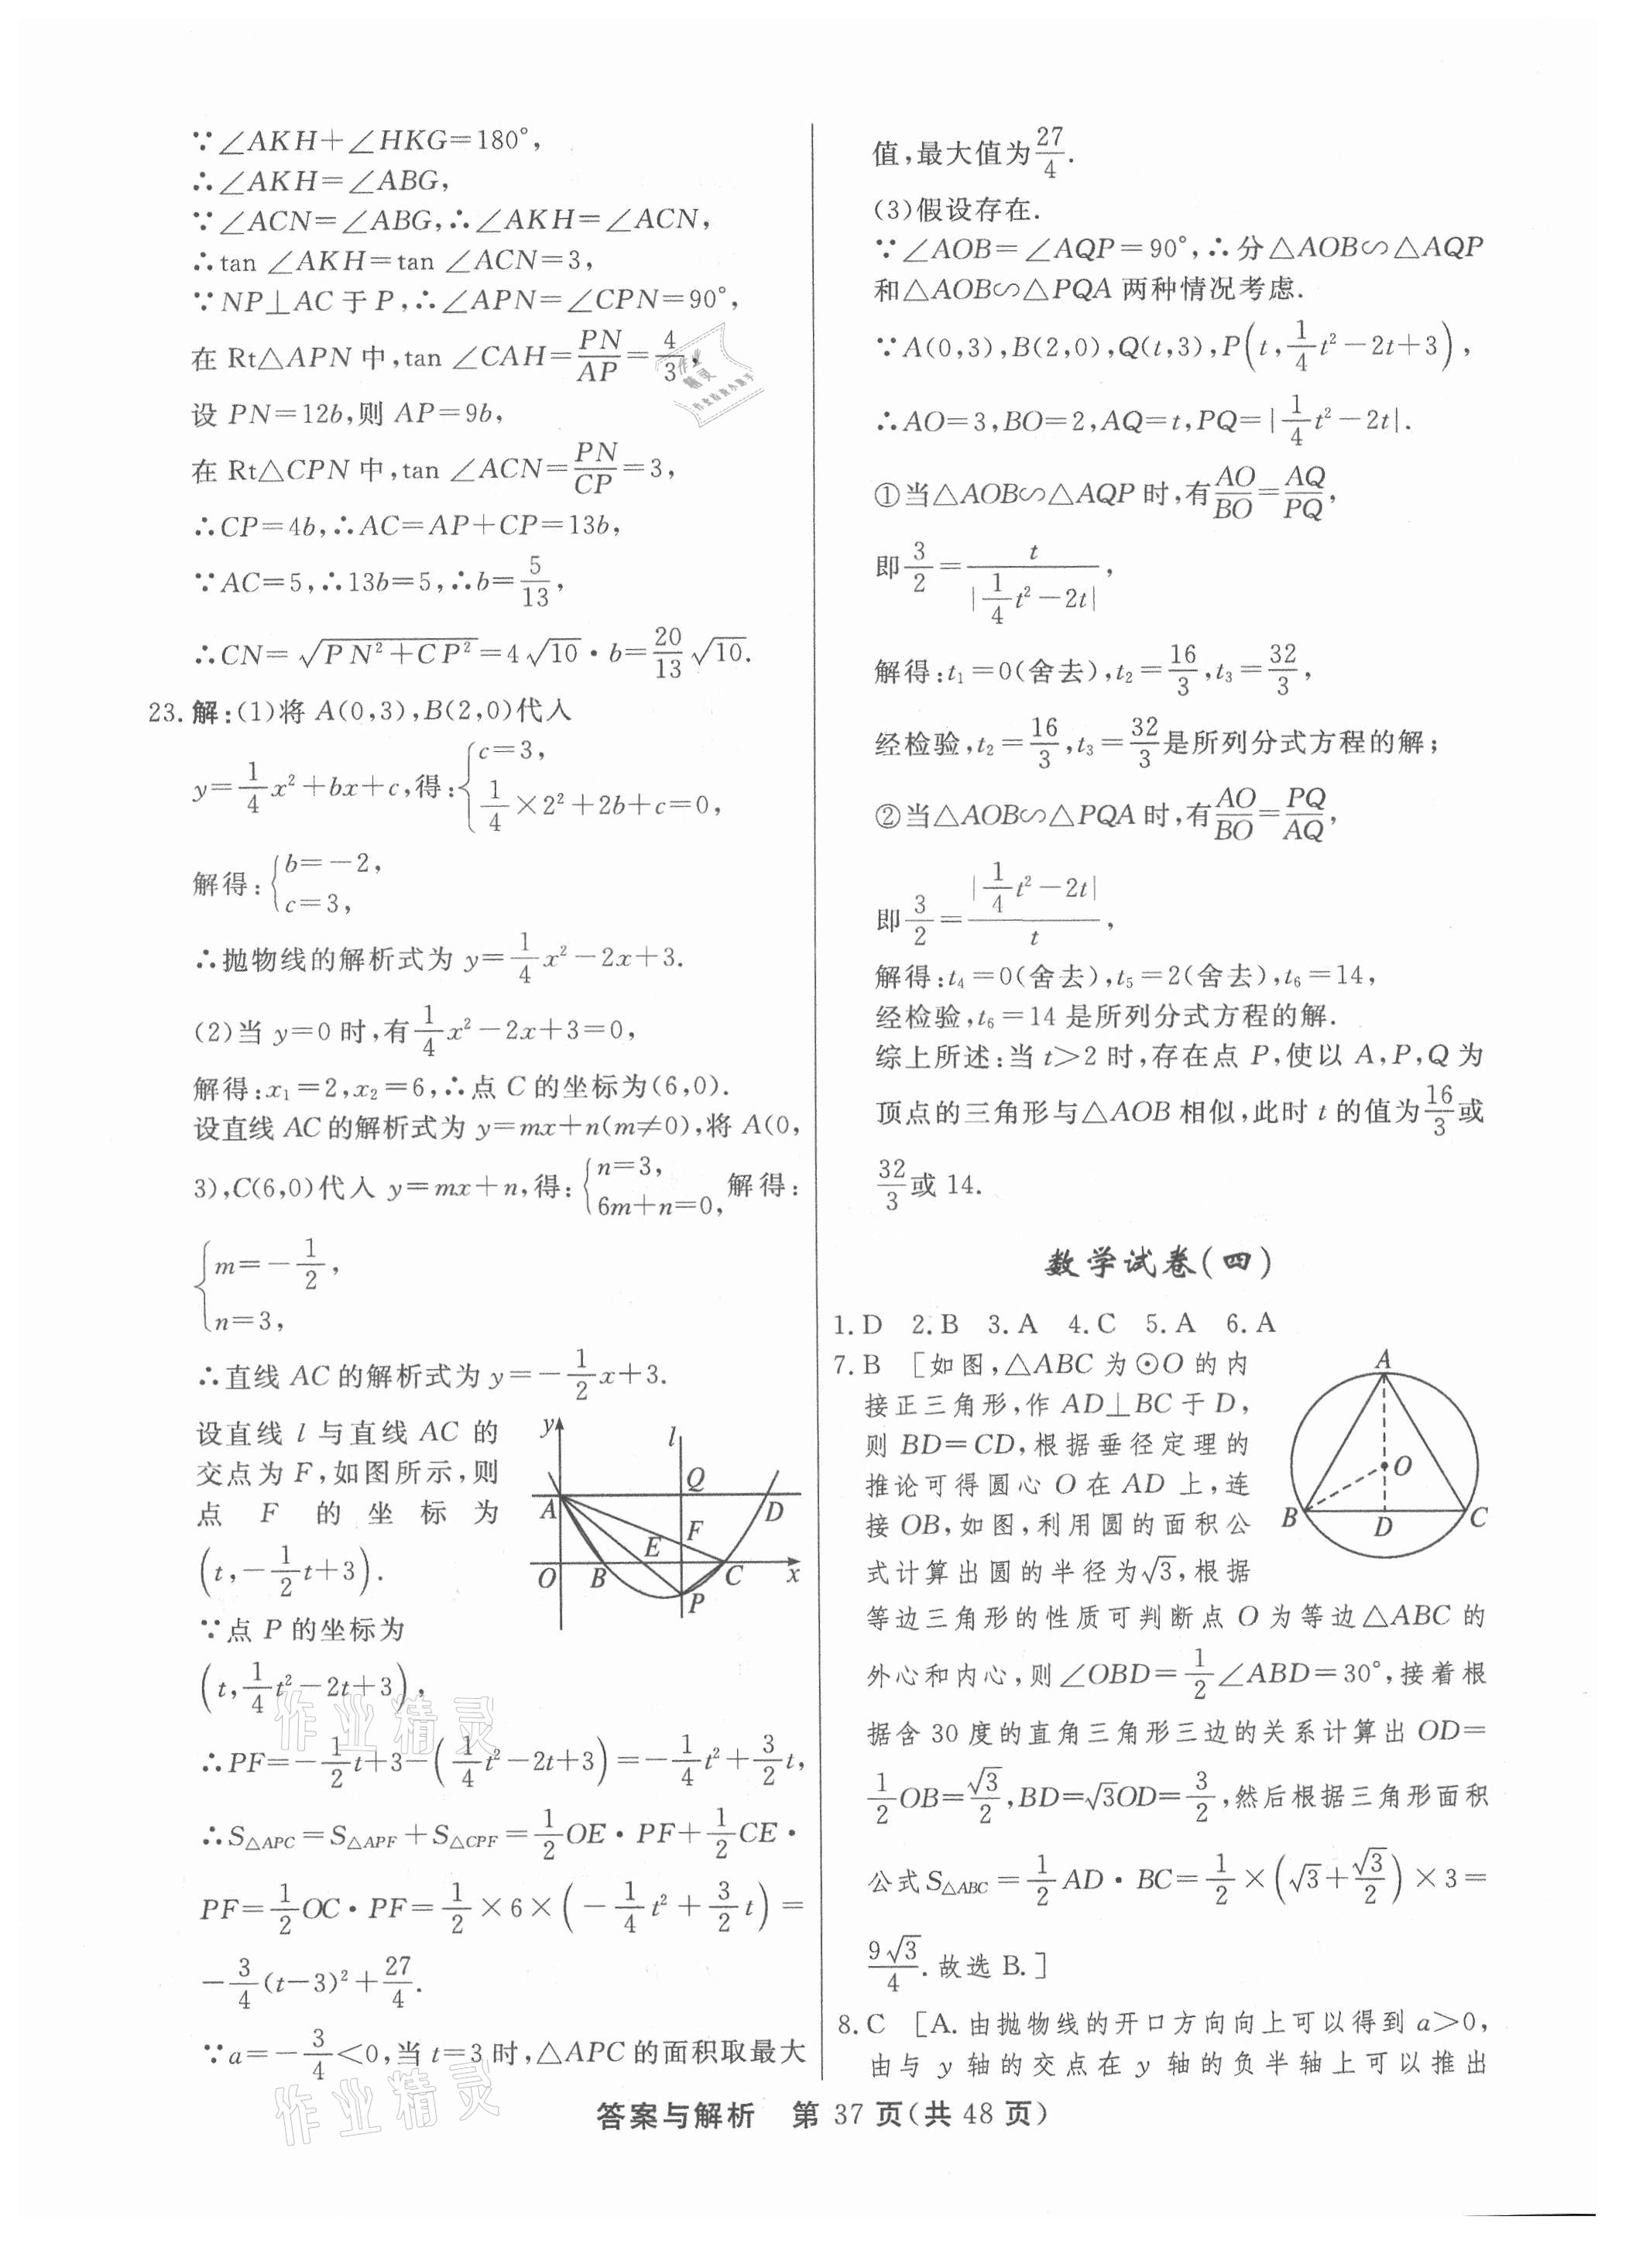 ∵∠AKH+∠HKG=180°,
∴∠AKH=∠ABG,
∵∠ACN=∠ABG,∴∠AKH=∠ACN,
∴tan ∠AKH=tan ∠ACN=3,
∵NP⊥AC于P,∴∠APN=∠CPN=90°,
在Rt△APN中,tan ∠CAH=PN/AP=4/3,
设PN=12b,则AP=9b,
在Rt△CPN中,tan ∠ACN=PN/CP=3,
∴CP=4b,∴AC=AP+CP=13b,
∵AC=5,∴13b=5,∴b=5/13,
∴CN=√(PN²+CP²)=4√10·b=20/13√10.
23.解:(1)将A(0,3),B(2,0)代入
y=1/4x²+bx+c,得:{c=3, 1/4×2²+2b+c=0,
解得:{b=-2, c=3,
∴抛物线的解析式为y=1/4x²-2x+3.
(2)当y=0时,有1/4x²-2x+3=0,
解得:x₁=2,x₂=6,∴点C的坐标为(6,0).
设直线AC的解析式为y=mx+n(m≠0),将A(0,
3),C(6,0)代入y=mx+n,得:{n=3, 6m+n=0, 解得:
{m=-1/2, n=3,
∴直线AC的解析式为y=-1/2x+3.
设直线l与直线AC的
交点为F,如图所示,则
点F的坐标为
(t,-1/2t+3).
∵点P的坐标为
(t,1/4t²-2t+3),
y l Q A D F E O B C x P
∴PF=-1/2t+3-(1/4t²-2t+3)=-1/4t²+3/2t,
∴S△APC=S△APF+S△CPF=1/2OE·PF+1/2CE·
PF=1/2OC·PF=1/2×6×(-1/4t²+3/2t)=
-3/4(t-3)²+27/4.
∵a=-3/4<0,当t=3时,△APC的面积取最大
值,最大值为27/4.
(3)假设存在.
∵∠AOB=∠AQP=90°,∴分△AOB∽△AQP
和△AOB∽△PQA两种情况考虑.
∵A(0,3),B(2,0),Q(t,3),P(t,1/4t²-2t+3),
∴AO=3,BO=2,AQ=t,PQ=|1/4t²-2t|.
①当△AOB∽△AQP时,有AO/BO=AQ/PQ,
即3/2=t/|1/4t²-2t|,
解得:t₁=0(舍去),t₂=16/3,t₃=32/3,
经检验,t₂=16/3,t₃=32/3是所列分式方程的解;
②当△AOB∽△PQA时,有AO/BO=PQ/AQ,
即3/2=|1/4t²-2t|/t,
解得:t₄=0(舍去),t₅=2(舍去),t₆=14,
经检验,t₆=14是所列分式方程的解.
综上所述:当t>2时,存在点P,使以A,P,Q为
顶点的三角形与△AOB相似,此时t的值为16/3或
32/3或14.
数学试卷(四)
1.D 2.B 3.A 4.C 5.A 6.A
7.B [如图,△ABC为⊙O的内
接正三角形,作AD⊥BC于D,
则BD=CD,根据垂径定理的
推论可得圆心O在AD上,连
接OB,如图,利用圆的面积公
式计算出圆的半径为√3,根据
A O B D C
等边三角形的性质可判断点O为等边△ABC的
外心和内心,则∠OBD=1/2∠ABD=30°,接着根
据含30度的直角三角形三边的关系计算出OD=
1/2OB=√3/2,BD=√3OD=3/2,然后根据三角形面积
公式S△ABC=1/2AD·BC=1/2×(√3+√3/2)×3=
9√3/4.故选B.]
8.C [A.由抛物线的开口方向向上可以得到a>0,
由与y轴的交点在y轴的负半轴上可以推出
答案与解析 第37页(共48页)
作业精灵
作业精灵
作业精灵